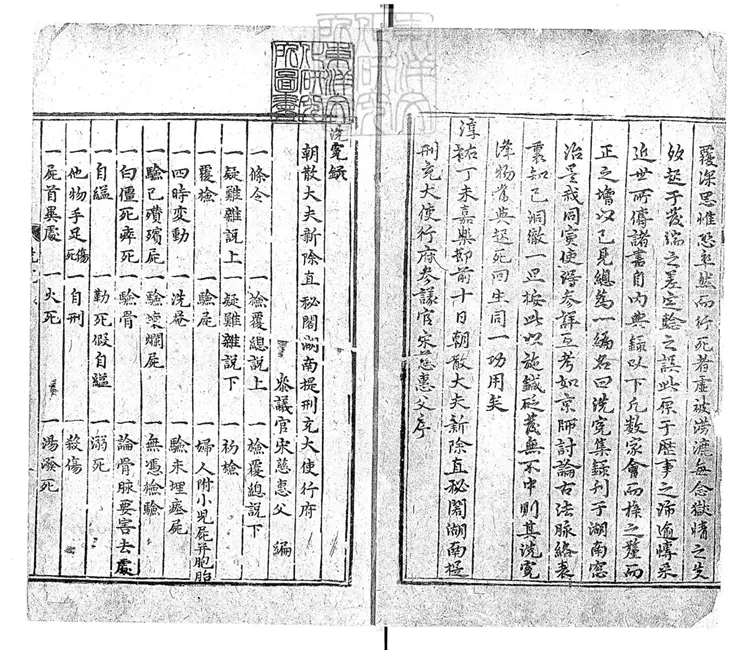 覆深思惟恐率然而行死者虛被澇漉每念獄情之失
多起于發端之差定驗之誤皆原于歷事之淺遂博采
近世所傳諸書自内典錄以下凡數家會而稡之釐而
正之增以己見總為一編名曰洗寃集錄刊于湖南憲
治呈我同寅使得參詳互考如京師討論古法脉絡表
裏知已洞徹一旦按此以施鍼砭發無不中則其洗寃
澤物當與起死回生同一功用矣
淳祐丁未嘉平節前十日朝散大夫新除直秘閣湖南提
刑充大使行府參議官宋慈惠父序
東洋文化研究所圖書
洗寃錄
朝散大夫新除直秘閣湖南提刑充大使行府
參議官宋慈惠父 編
一條令 一檢覆總說上 一檢覆總說下
一疑難雜說上 一疑難雜說下 一初檢
一覆檢 一驗屍 一婦人附小兒屍并胞胎
一四時變動 一洗罨 一驗未埋瘞屍
一驗已殯殯屍 一驗壞爛屍 一無憑檢驗
一白僵死瘁死 一驗骨 一論骨脉要害去處
一自縊 一勒死假自縊 一溺死
一他物手足傷死 一自刑 一殺傷
一屍首異處 一火死 一湯潑死